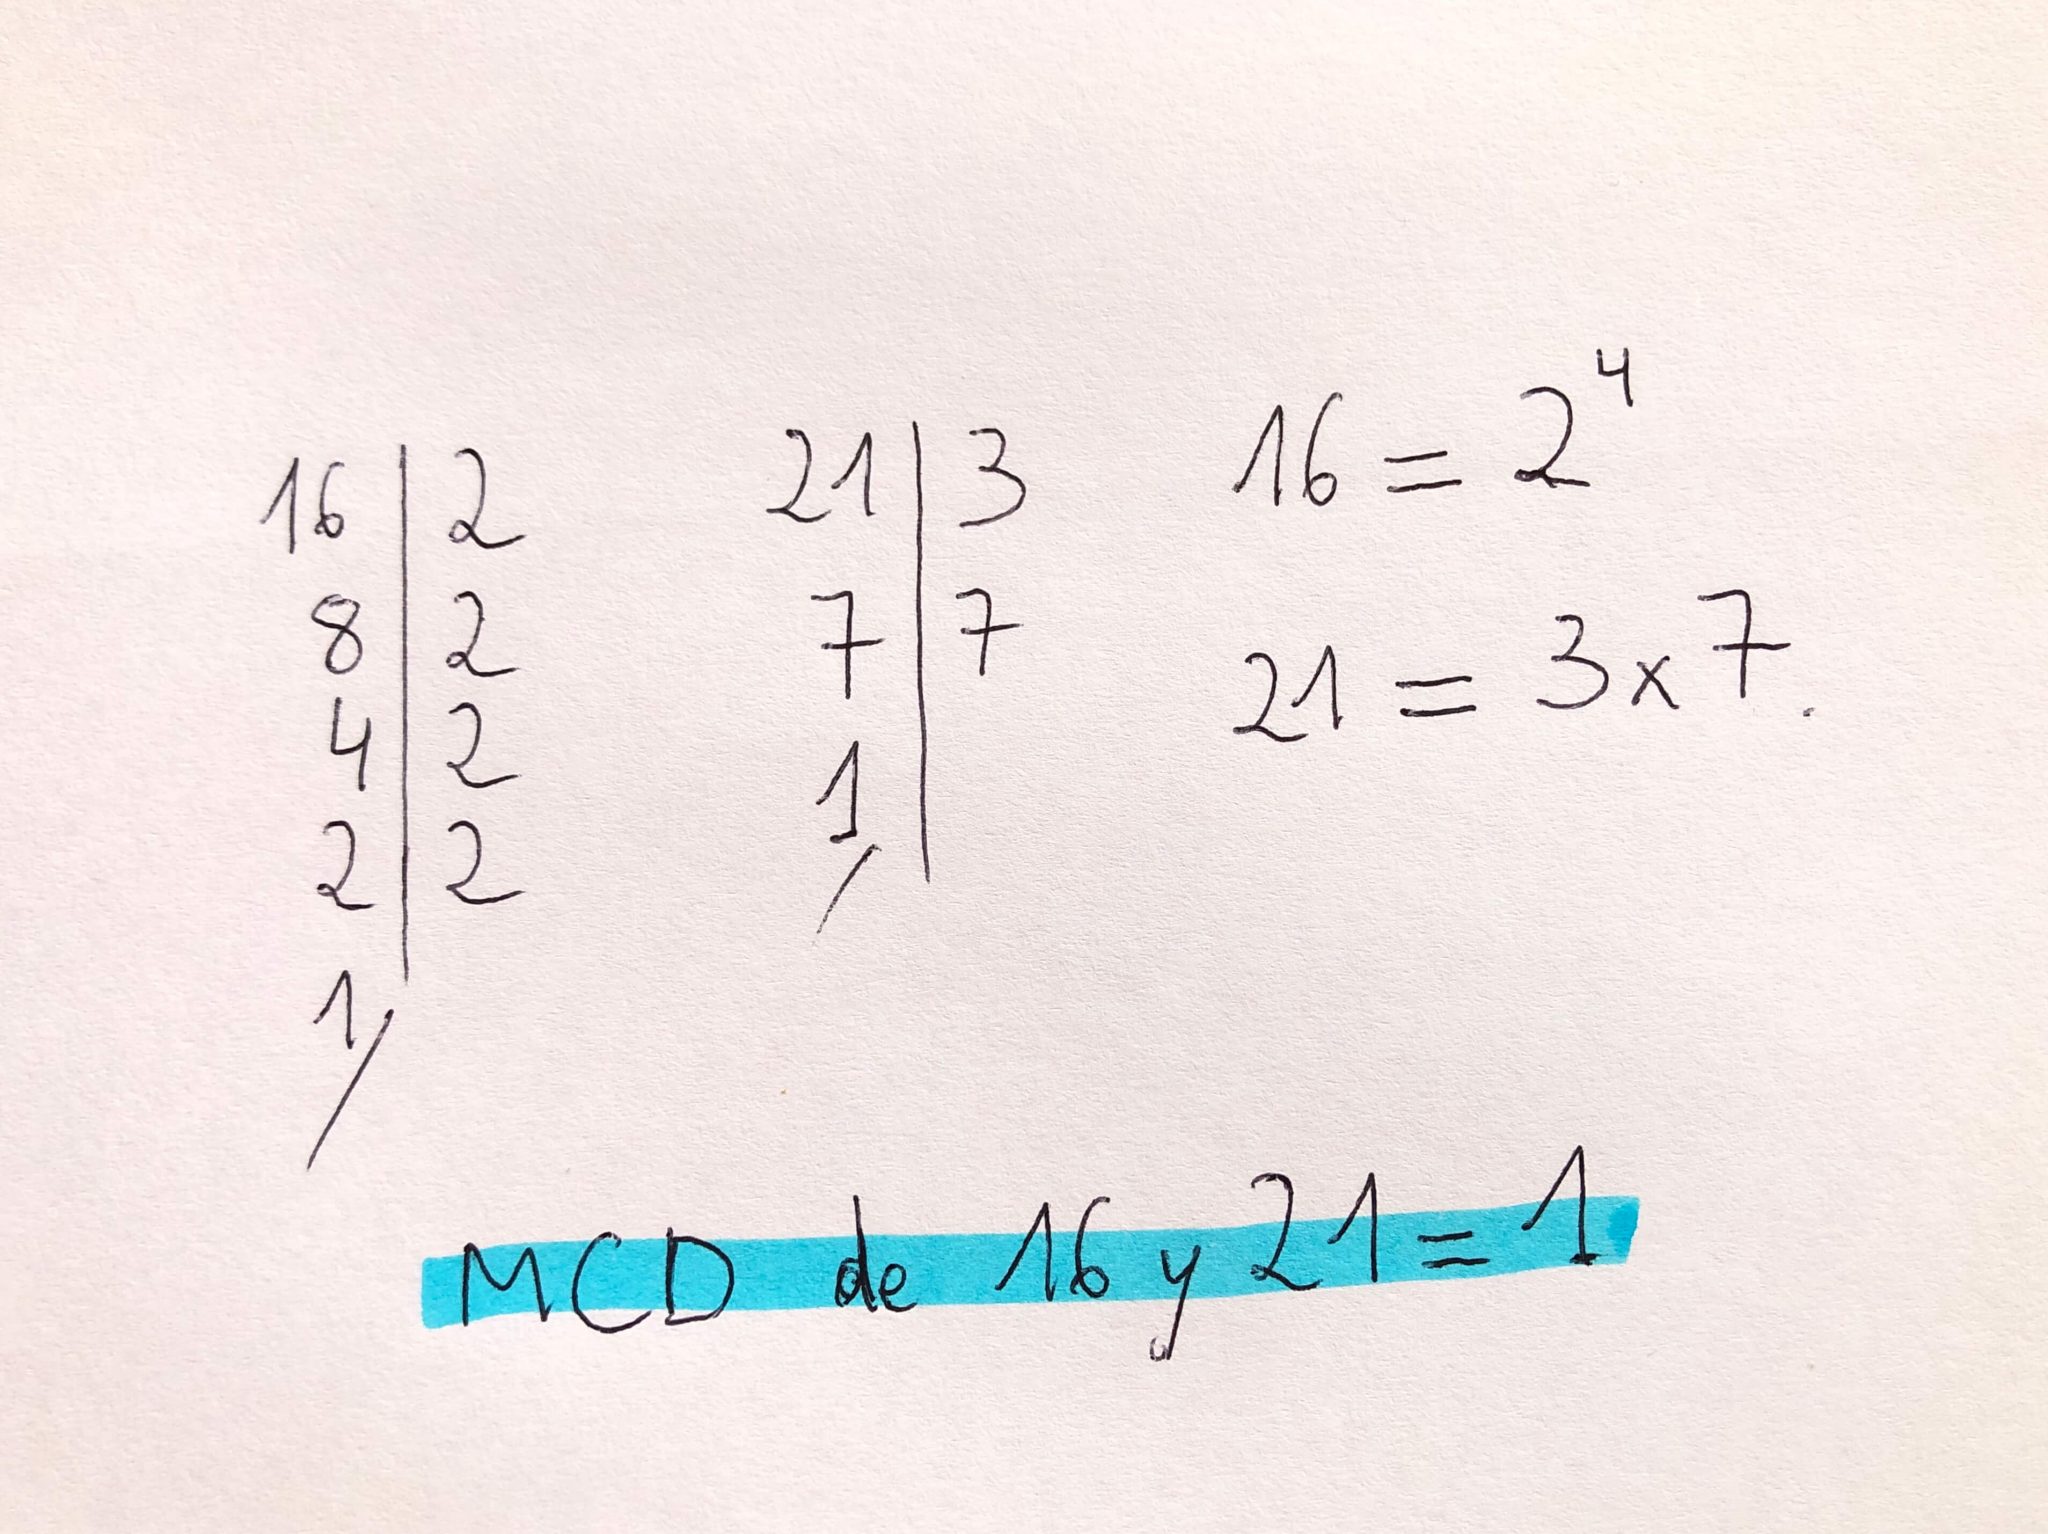 16 | 2
8 | 2
4 | 2
2 | 2
1/
21 | 3
7 | 7
1/
16 = 2⁴
21 = 3x7.
MCD de 16 y 21 = 1